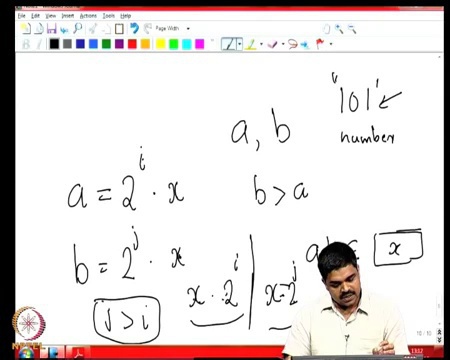 File Edit View Insert Actions Tools Help
Page Width
B
"101"
number
a, b
a = 2^i · x
b > a
b = 2^j · x
j > i
x · 2^i
x = 2^j
x